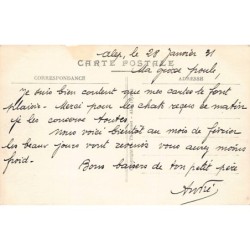 Alep, le 28 Janvier 31
CARTE POSTALE
CORRESPONDANCE
ADRESSE
Ma grosse poule,
Je suis bien content que mes cartes te font
plaisir - Merci pour les reçues ce matin
je les conserve toutes
Nous voici bientôt au mois de février
les beaux jours vont revenir vous aurez moins
froid -
Bons baisers de ton petit père
André